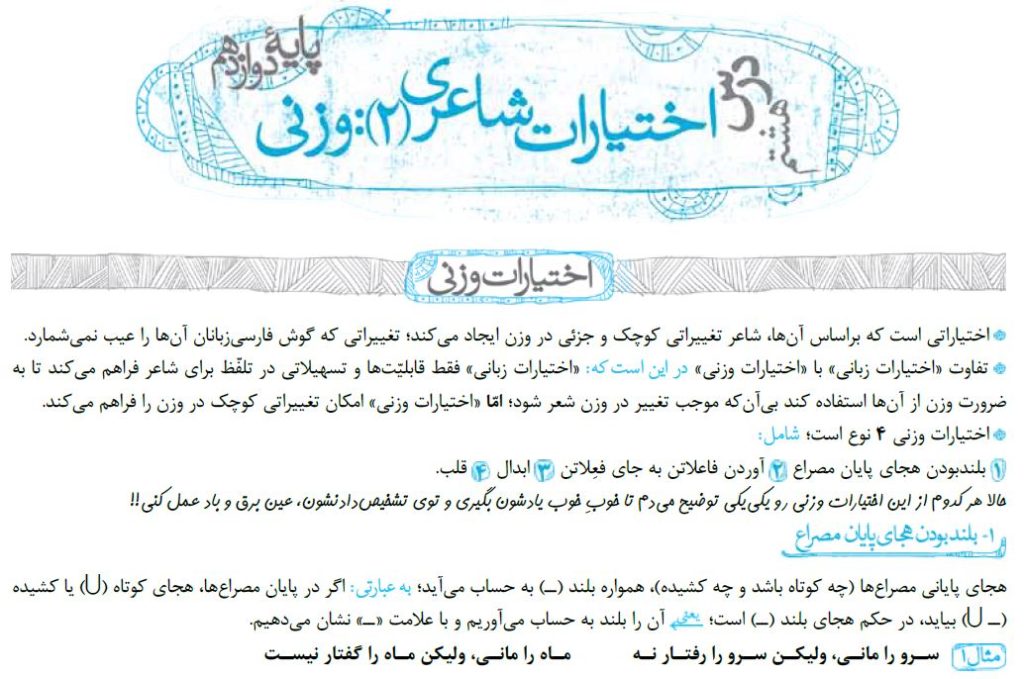 درس هشتم
اختیارات شاعری (۲): وزنی
پایهٔ دوازدهم
اختیارات وزنی
اختیاراتی است که براساس آن‌ها، شاعر تغییراتی کوچک و جزئی در وزن ایجاد می‌کند؛ تغییراتی که گوش فارسی‌زبانان آن‌ها را عیب نمی‌شمارد.
تفاوت «اختیارات زبانی» با «اختیارات وزنی» در این است که: «اختیارات زبانی» فقط قابلیّت‌ها و تسهیلاتی در تلفّظ برای شاعر فراهم می‌کند تا به
ضرورت وزن از آن‌ها استفاده کند بی‌آن‌که موجب تغییر در وزن شعر شود؛ امّا «اختیارات وزنی» امکان تغییراتی کوچک در وزن را فراهم می‌کند.
اختیارات وزنی ۴ نوع است؛ شامل:
۱ بلندبودن هجای پایان مصراع ۲ آوردن فاعلاتن به جای فعِلاتن ۳ ابدال ۴ قلب.
حالا هر کدوم از این اختیارات وزنی رو یکی‌یکی توضیح می‌دم تا خوبِ خوب یادشون بگیری و توی تشخیص‌دادنشون، عین برق و باد عمل کنی!!
۱- بلندبودن هجای پایان مصراع
هجای پایانی مصراع‌ها (چه کوتاه باشد و چه کشیده)، همواره بلند (ـ) به حساب می‌آید؛ به عبارتی: اگر در پایان مصراع‌ها، هجای کوتاه (U) یا کشیده
(ـ U) بیاید، در حکم هجای بلند (ـ) است؛ یعنی آن را بلند به حساب می‌آوریم و با علامت «ـ» نشان می‌دهیم.
مثال۱ سرو را مانی، ولیکن سرو را رفتار نه ماه را مانی، ولیکن ماه را گفتار نیست